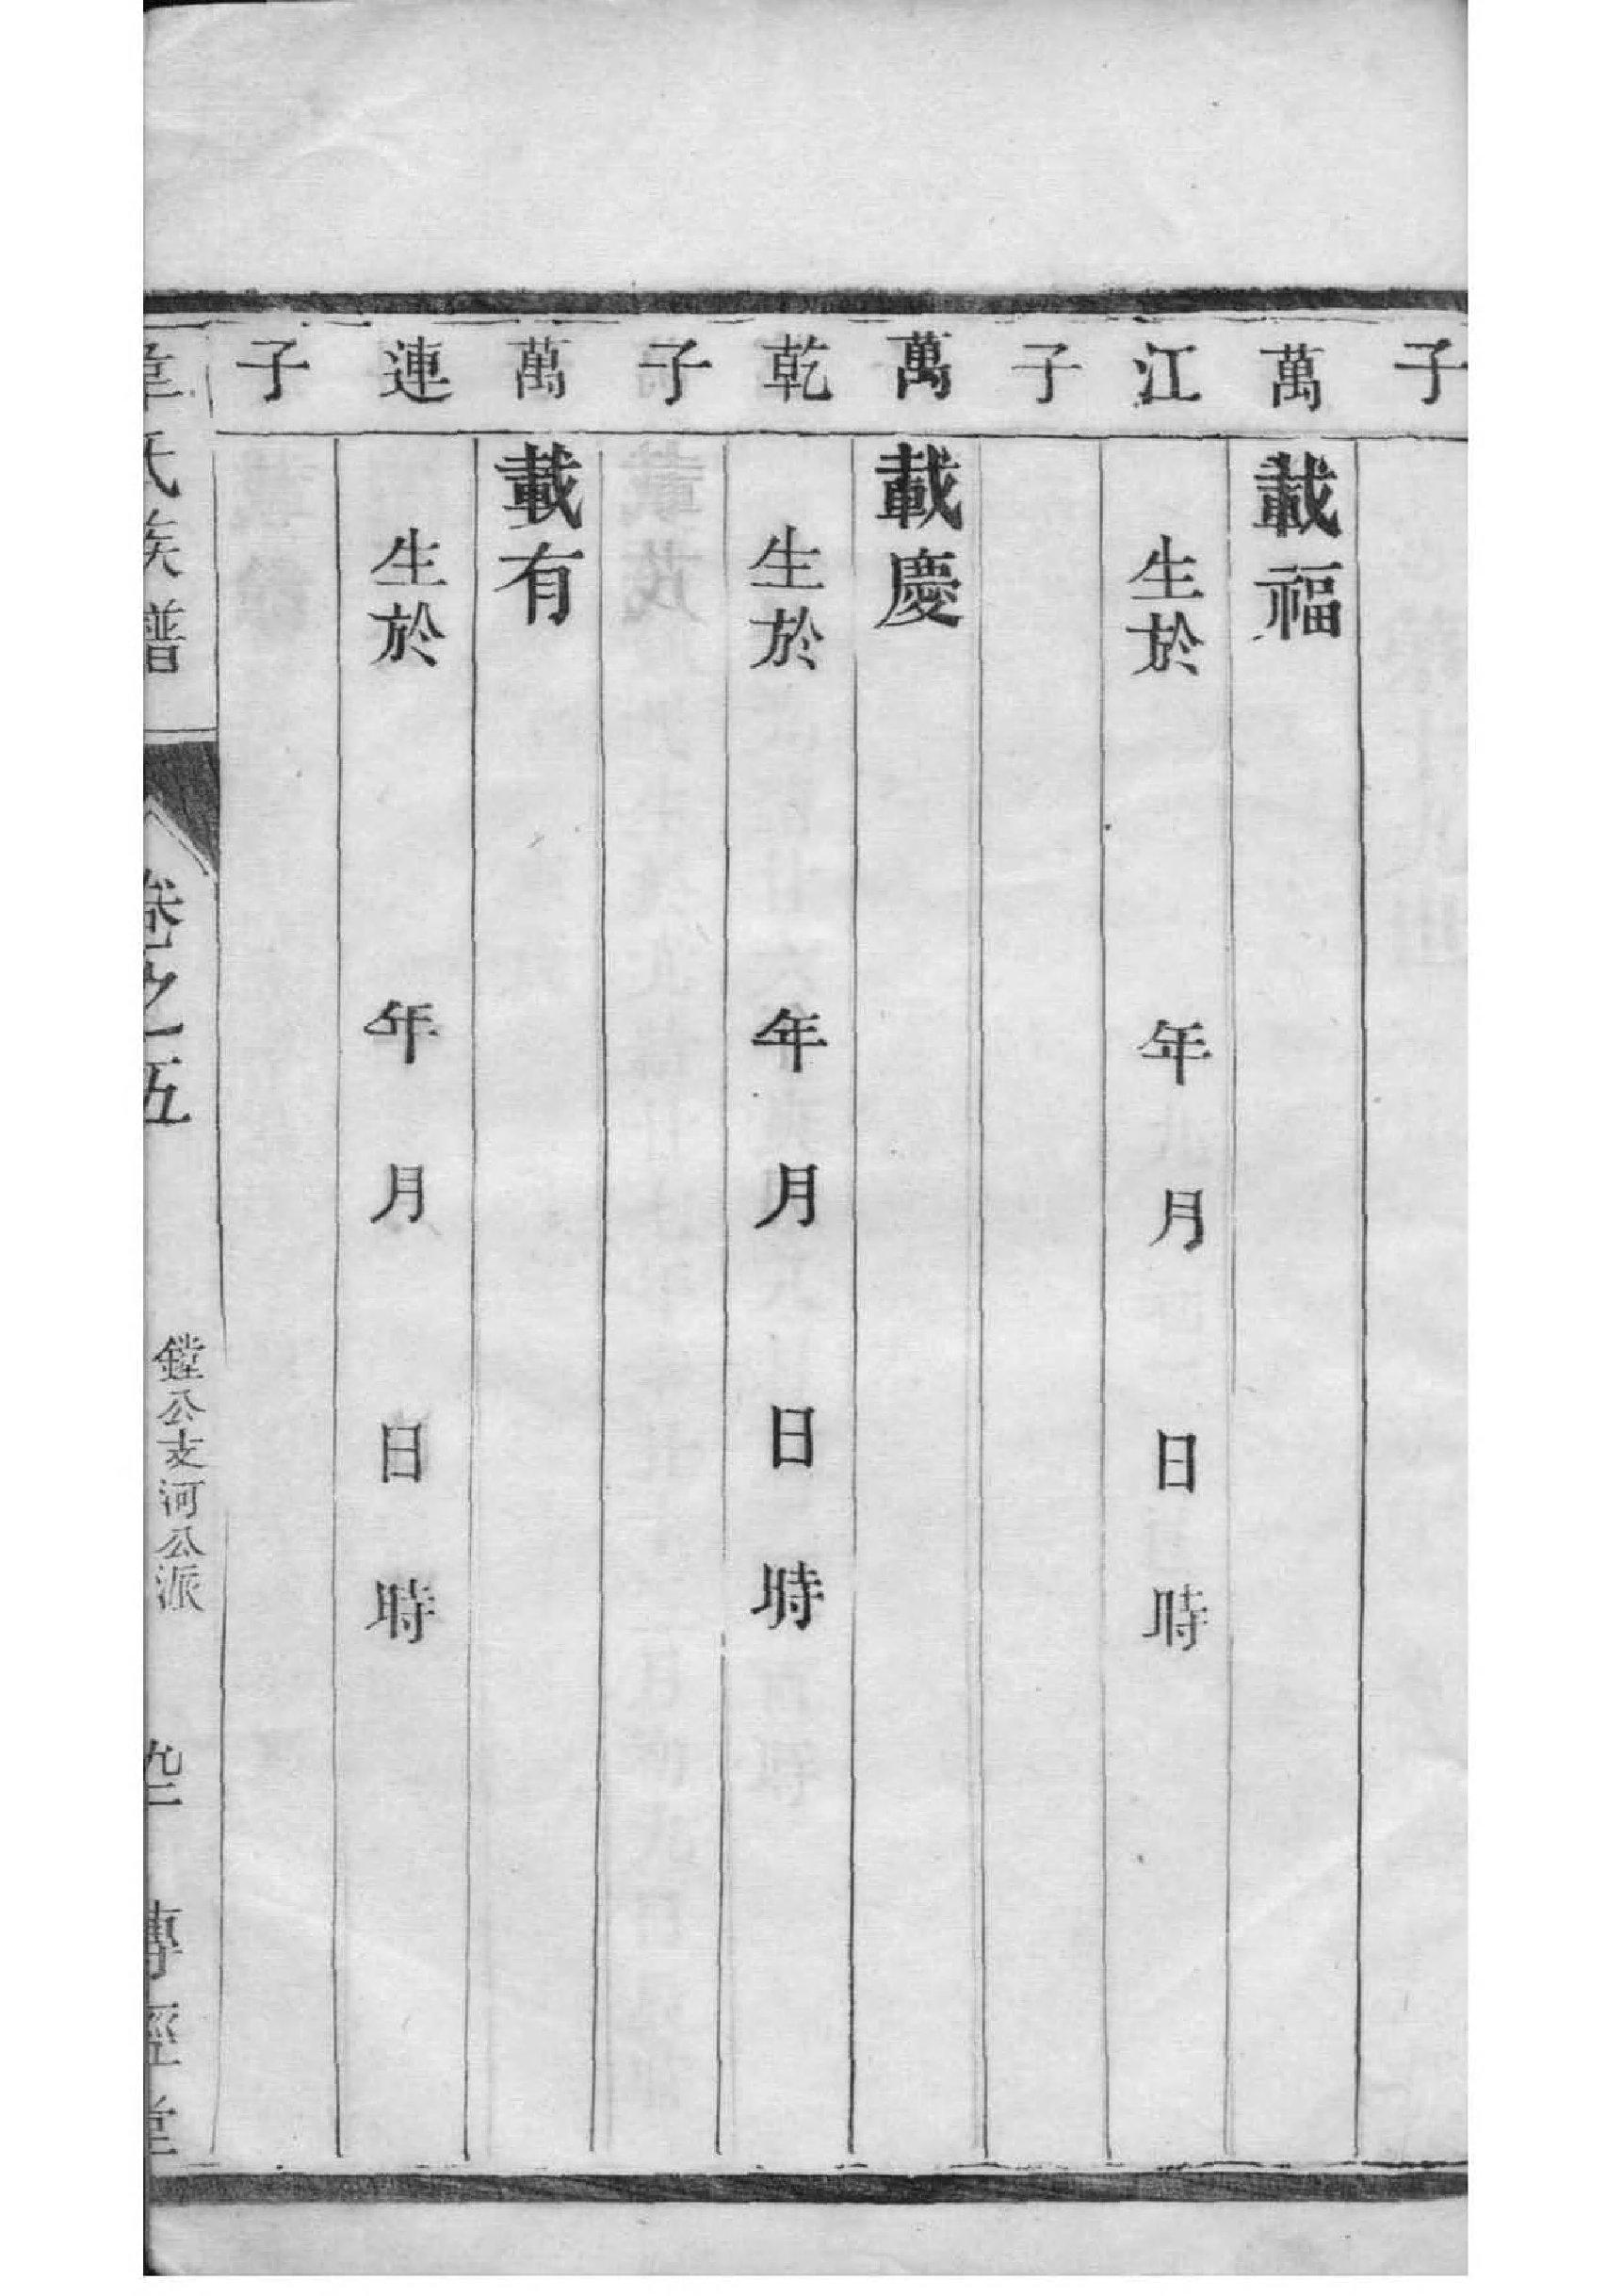 子
萬 載福
江 生於 年 月 日 時
子
萬 載慶
乾 生於 年 月 日 時
子
萬 載有
連 生於 年 月 日 時
子
氏族譜 卷之五 鏜公支河公派 傳經堂